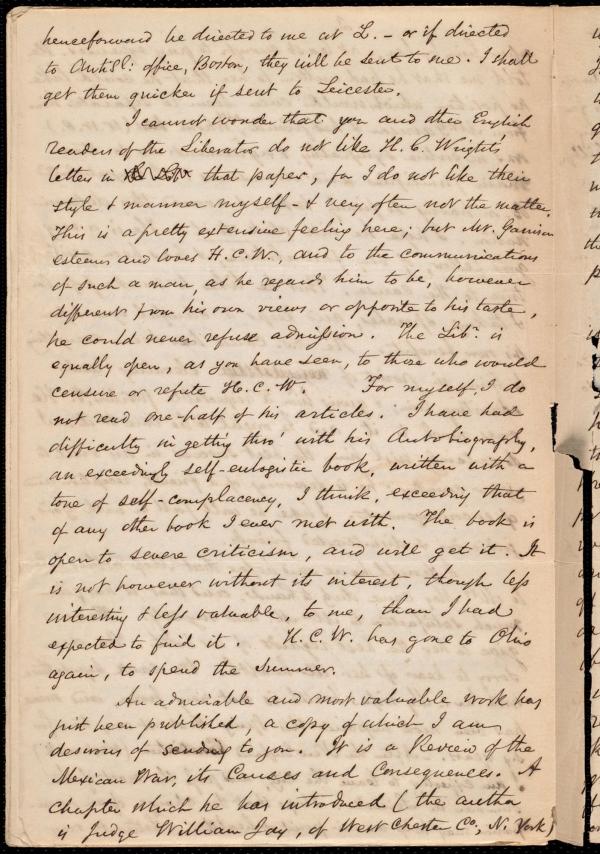 henceforward be directed to me at L. - or if directed
to AntiSl: office, Boston, they will be sent to me. I shall
get them quicker if sent to Leicester.
I cannot wonder that you and other English
readers of the Liberator do not like H. C. Wright's
letters in that paper, for I do not like their
style & manner myself - & very often not the matter.
This is a pretty extensive feeling here; but Mr. Garrison
esteems and loves H. C. W., and to the communications
of such a man, as he regards him to be, however
different from his own views or opposite to his taste,
he could never refuse admission. The Libr. is
equally open, as you have seen, to those who would
censure or refute H. C. W. For myself, I do
not read one-half of his articles. I have had
difficulty in getting thro' with his Autobiography,
an exceedingly self-eulogistic book, written with a
tone of self-complacency, I think, exceeding that
of any other book I ever met with. The book is
open to severe criticism, and will get it. It
is not however without its interest, though less
interesting & less valuable, to me, than I had
expected to find it. H. C. W. has gone to Ohio
again, to spend the summer.
An admirable and most valuable work has
just been published, a copy of which I am
desirous of sending to you. It is a Review of the
Mexican War, its Causes and Consequences. A
chapter which he has introduced (the author
is Judge William Jay, of West Chester Co., N. York)